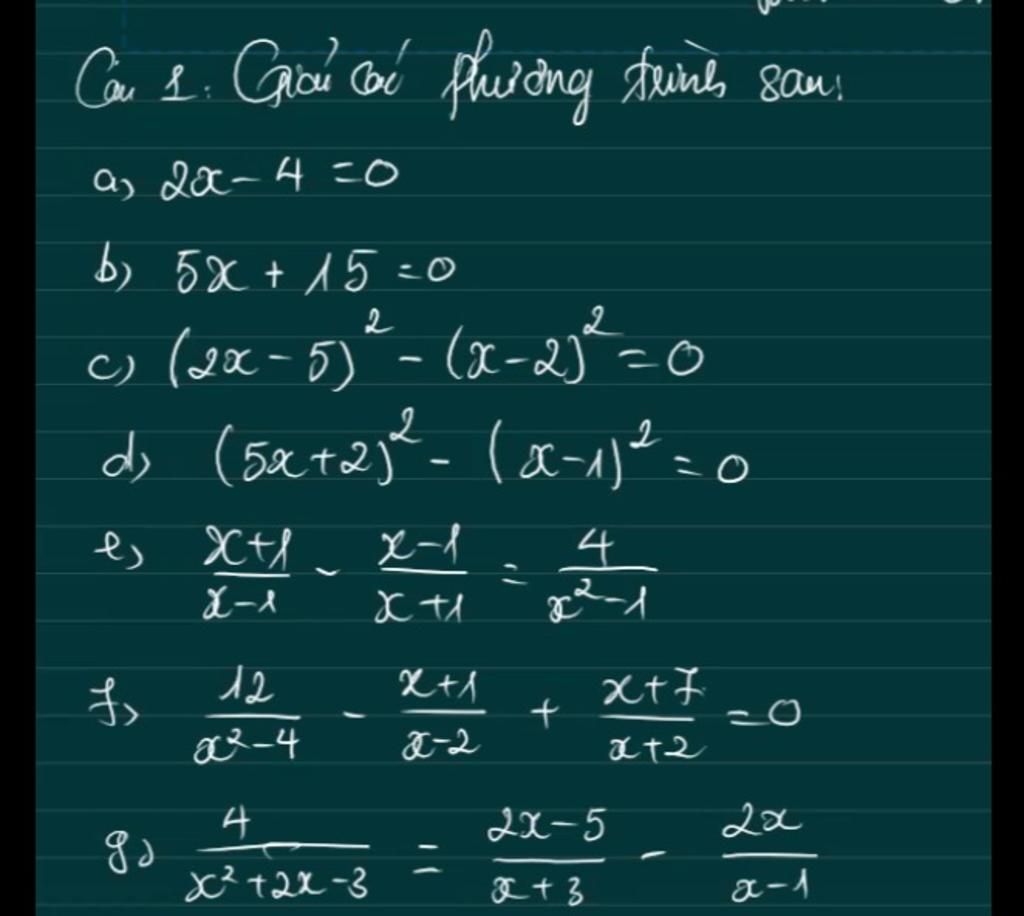 Câu 1: Giải các phương trình sau:
a) 2x - 4 = 0
b) 5x + 15 = 0
c) (2x - 5)² - (x - 2)² = 0
d) (5x + 2)² - (x - 1)² = 0
e) (x+1)/(x-1) - (x-1)/(x+1) = 4/(x²-1)
f) 12/(x²-4) - (x+1)/(x-2) + (x+7)/(x+2) = 0
g) 4/(x²+2x-3) = (2x-5)/(x+3) - 2x/(x-1)